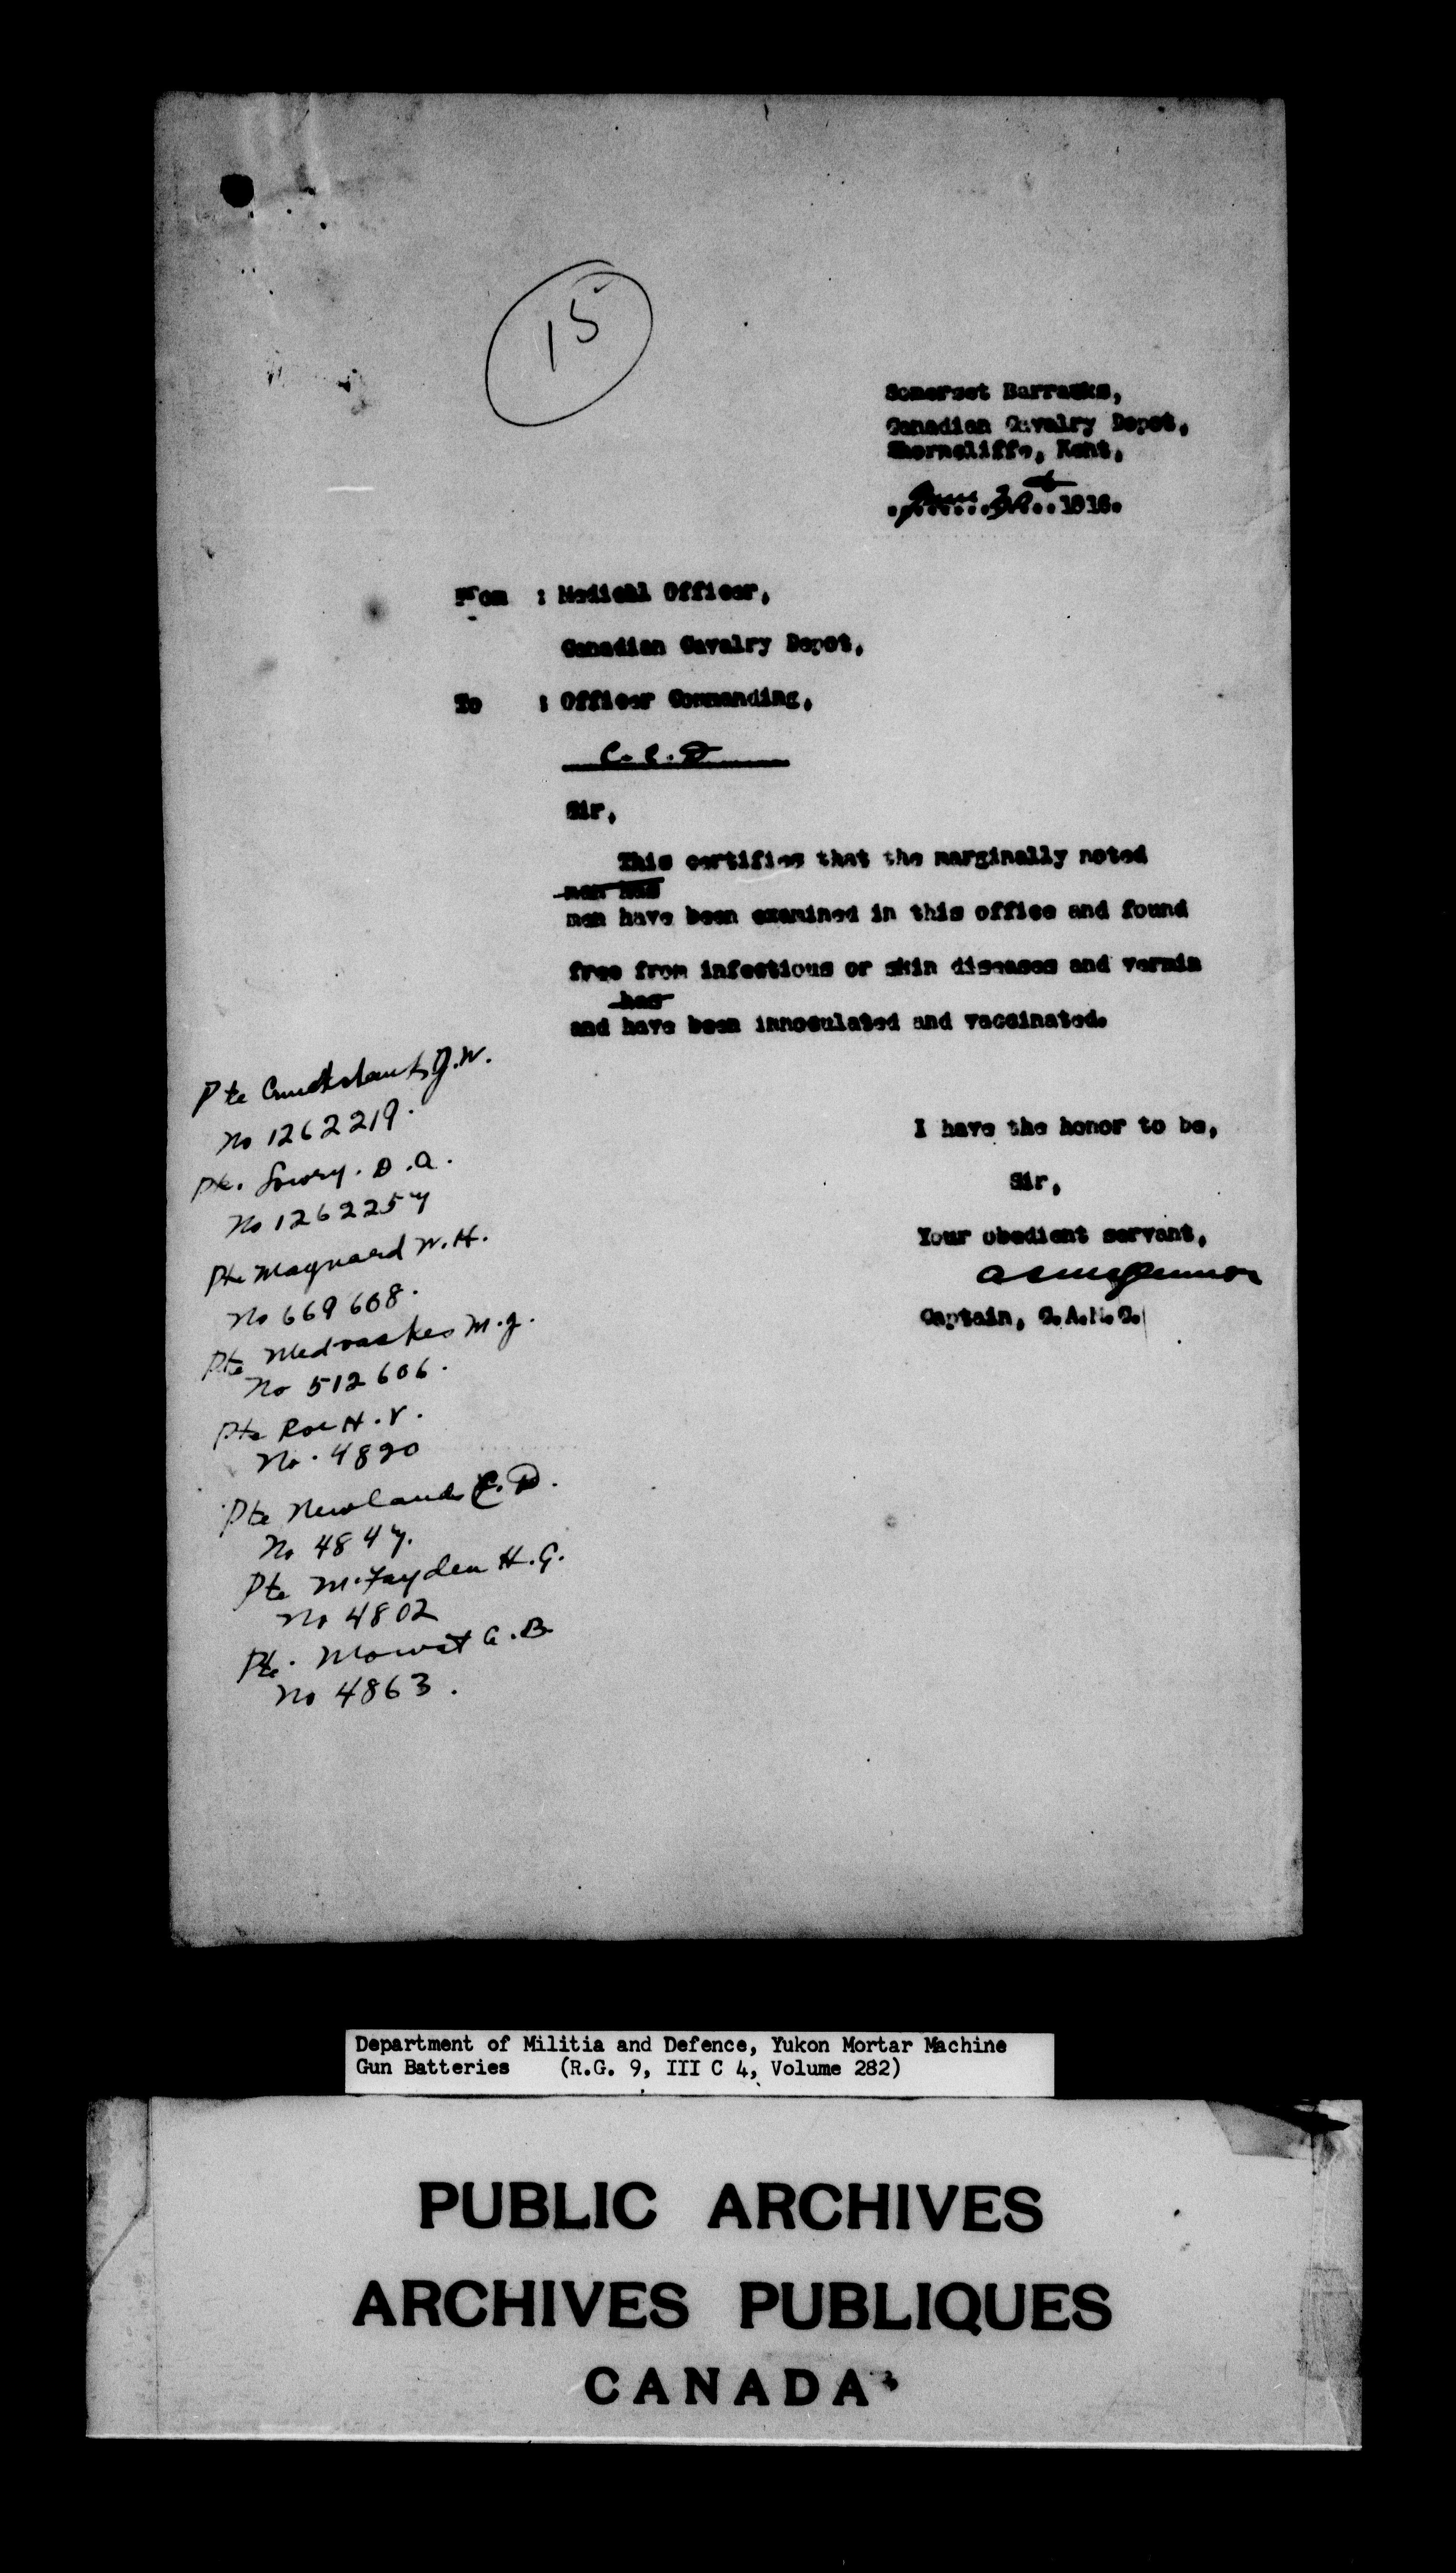 15
Somerset Barracks,
Canadian Cavalry Depot,
Shorncliffe, Kent,
1916.
From : Medical Officer,
Canadian Cavalry Depot,
To : Officer Commanding,
C.C.D
Sir,
This certifies that the marginally noted
man has
men have been examined in this office and found
free from infectious or skin diseases and vermin
has
and have been innoculated and vaccinated.
Pte J.W.
No 1262219.
Pte. Lowry. D.A.
No 1262257
Pte Maynard W.H.
No 669608.
Pte M.J.
No 512606.
Pte Roe H.V.
No. 4820
Pte Newlands E.D.
No 4847.
Pte McFayden H.G.
No 4802
Pte. Mowat G.B
No 4863.
I have the honor to be,
Sir,
Your obedient servant,
Captain, C.A.M.C.
Department of Militia and Defence, Yukon Mortar Machine
Gun Batteries (R.G. 9, III C 4, Volume 282)
PUBLIC ARCHIVES
ARCHIVES PUBLIQUES
CANADA